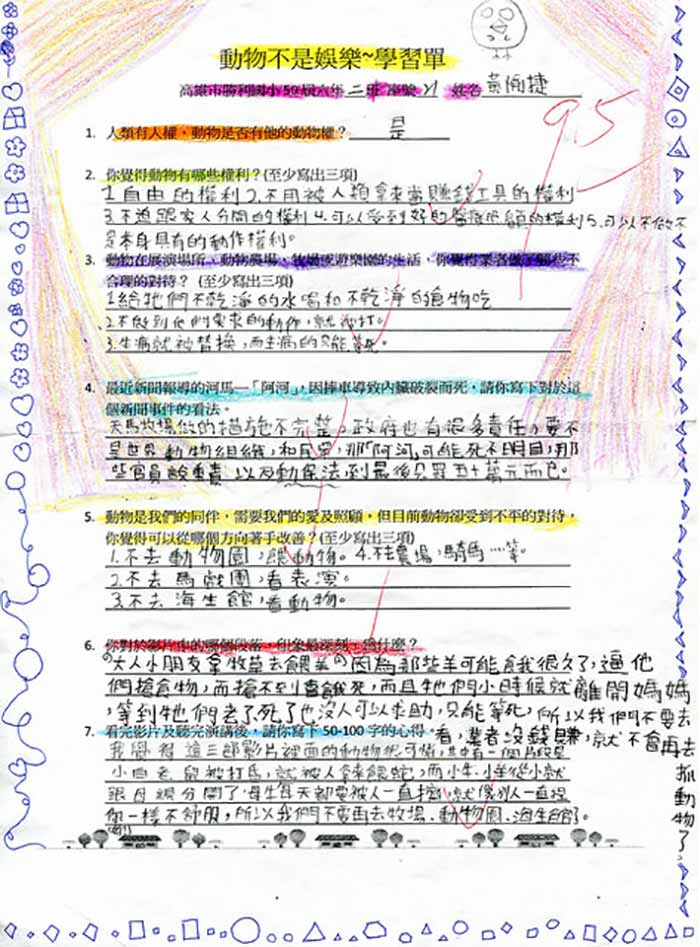 動物不是娛樂~學習單
高雄市勝利國小59屆六年二班 座號21 姓名 黃
95
1. 人類有人權，動物是否有他的動物權？ 是
2. 你覺得動物有哪些權利？(至少寫出三項)
1.自由的權利 2.不用被人類拿來當賺錢工具的權利
3.不過跟家人分開的權利 4.可以受到好的醫療照顧的權利 5.可以不做不
是本身具有的動作權利。
3. 動物在展演場所、動物農場、牧場或遊樂園的生活，你覺得業者做了哪些不
合理的對待？ (至少寫出三項)
1.給牠們不乾淨的水喝和不乾淨的食物吃
2.不做到他們要求的動作，就被打。
3.生病就被替換，而生病的只能等死。
4. 最近新聞報導的河馬—「阿河」，因摔車導致內臟破裂而死，請你寫下對於這
個新聞事件的看法。
天馬牧場做的措施不完整，政府也有很多責任，要不
是世界動物組織，和民眾，那「阿河」可能死不明目，那
些官員該負責，以及動保法到最後只罰五十萬元而已。
5. 動物是我們的同伴，需要我們的愛及照顧，但目前動物卻受到不平的對待，
你覺得可以從哪個方向著手改善？(至少寫出三項)
1.不去動物園，餵動物。4.不去農場，騎馬…等。
2.不去馬戲團，看表演。
3.不去海生館，看動物。
6. 你對於影片中的哪個段落，印象最深刻，為什麼？
「大人小朋友拿牧草去餵羊」因為那些羊可能餓我很久了，逼他
們搶食物，而搶不到會餓死，而且牠們小時候就離開媽媽
，等到牠們老了、死了也沒人可以求助，只能等死，所以我們不要去
看，業者沒錢賺，就不會再去
抓動物了。
7. 看完影片及聽完演講後，請你寫下50-100字的心得。
我覺得這三部影片裡面的動物很可憐，其中有一個片段是
小白老鼠被打馬，就被人拿來餵蛇，而小牛、小羊從小就
跟母親分開了，母牛每天都要被人一直擠，就像別人一直捏
你一樣不舒服，所以我們不要再去牧場、動物園、海生館。